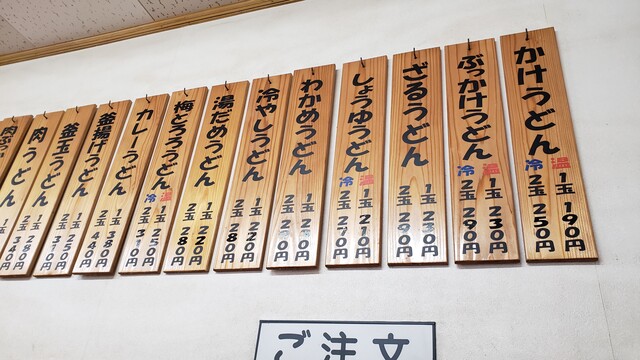 かけうどん
温 1玉 190円
冷 2玉 250円
ぶっかけうどん
温 1玉 230円
冷 2玉 290円
ざるうどん
1玉 230円
2玉 290円
しょうゆうどん
温 1玉 210円
冷 2玉 270円
わかめうどん
1玉
2玉
冷やしうどん
1玉 220円
2玉 280円
湯だめうどん
1玉 220円
2玉 280円
梅とろろうどん
温 1玉 250円
冷 2玉 310円
カレーうどん
1玉 380円
2玉 440円
釜揚げうどん
1玉 250円
2玉 310円
釜玉うどん
1玉 280円
2玉 340円
肉うどん
1玉
肉ぶっ
ご注文